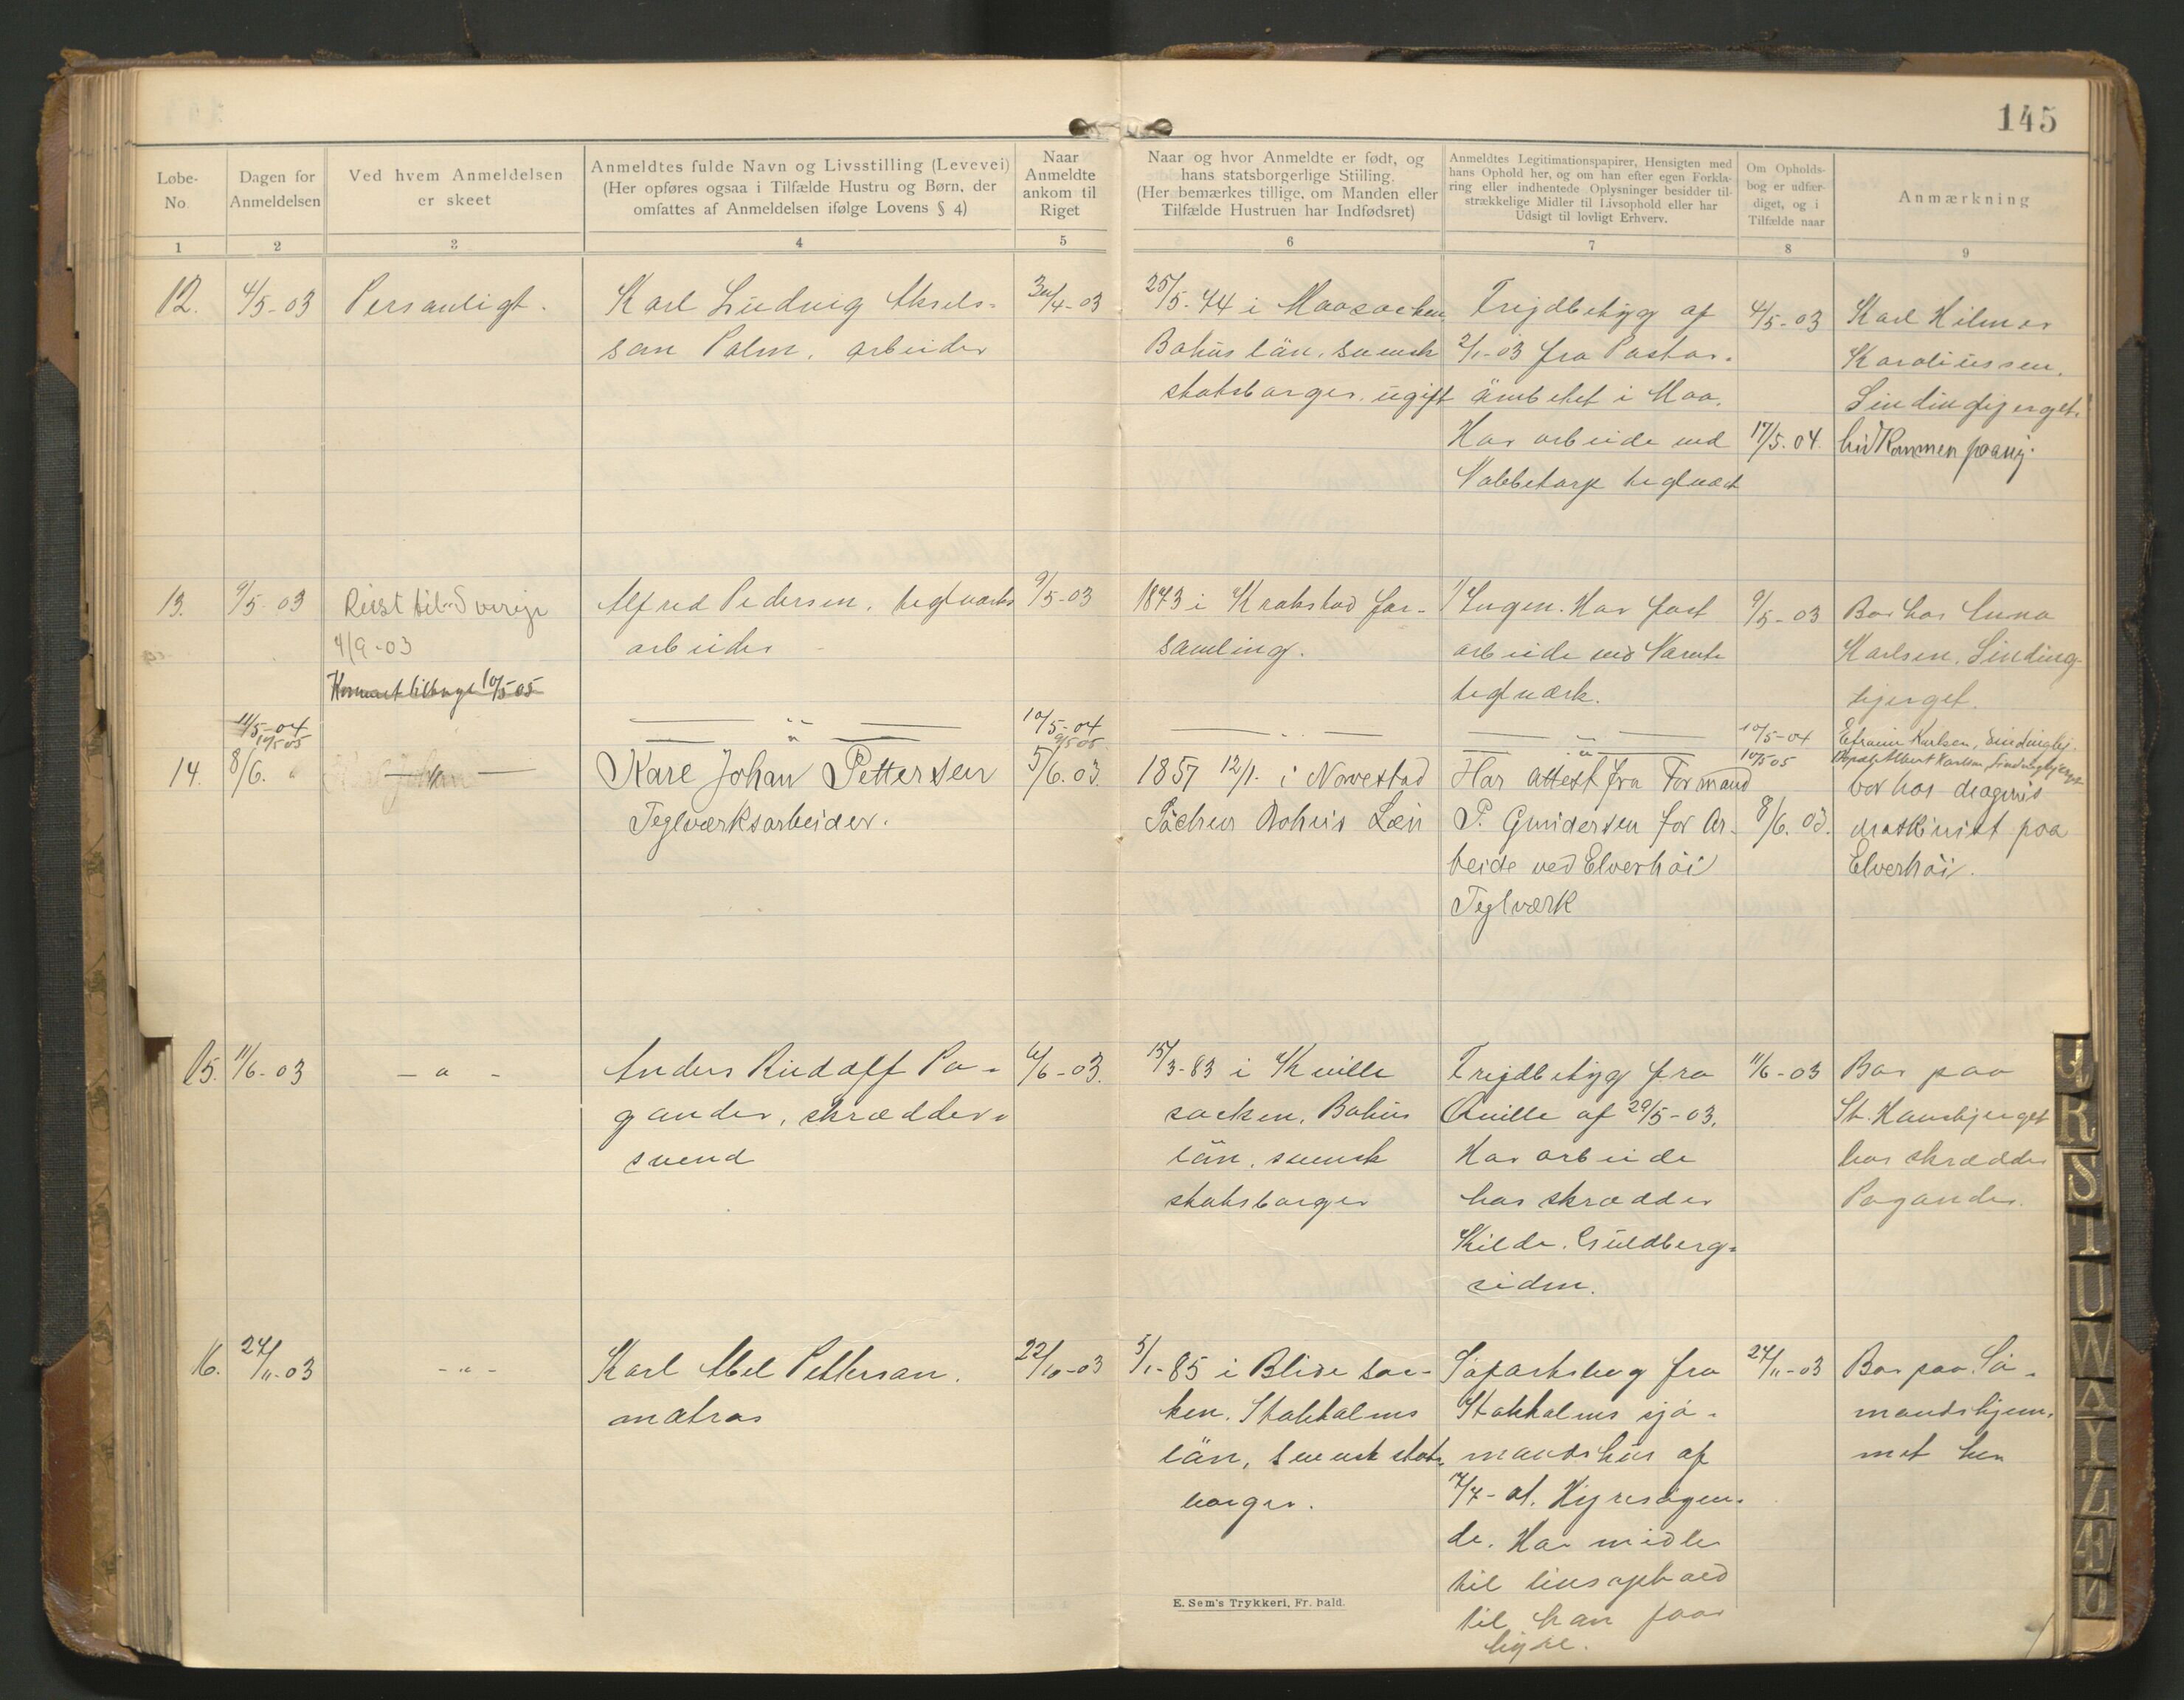 145
Løbe-No.
Dagen for Anmeldelsen
Ved hvem Anmeldelsen er skeet
Anmeldtes fulde Navn og Livsstilling (Levevei)
(Her opføres ogsaa i Tilfælde Hustru og Børn, der
omfattes af Anmeldelsen ifølge Lovens § 4)
Naar
Anmeldte
ankom til
Riget
Naar og hvor Anmeldte er født, og
hans statsborgerlige Stiiling.
(Her bemærkes tillige, om Manden eller
Tilfælde Hustruen har Indfødsret)
Anmeldtes Legitimationspapirer, Hensigten med
hans Ophold her, og om han efter egen Forkla-
ring eller indhentede Oplysninger besidder til-
strækkelige Midler til Livsophold eller har
Udsigt til lovligt Erhverv.
Om Opholds-
bog er udfær-
diget, og i
Tilfælde naar
Anmærkning
1 2 3 4 5 6 7 8 9
12.
4/5-03
Personligt.
Karl Ludvig Aksels-
son Palm, arbeider
30/4-03
25/5-44 i
Bohus län, svensk
statsborger, ugift
Frejdbetyg af
2/1-03 fra Pastor-
ämbetet i
Har arbeide ved
Nabbetorp teglværk
4/5-03
17/5.04.
Karl Hilmer
Karoliussen,
Sindingbjerget.
kommen paany.
13.
9/5-03
Reist til Sverige
4/9-03
Kommet tilbage 10/5 05
Alfred Pedersen, teglværks
arbeider
9/5-03
1873 i Krokstad for-
samling.
Ingen. Har fast
arbeide ved Narnte
teglværk.
9/5-03
Bor hos Anna
Karlsen, Sinding-
bjerget.
11/5-04
10/5 05
— " —
— " —
10/5-04
9/5 05
— " —
— " —
10/5-04
10/5 05
Efraim Karlsen, Sindingbj.
Albert Karlsen, Sindingbjerget
14.
8/6.
— " —
Karl Johan Pettersen
Teglværksarbeider.
5/6.03.
1857 12/1. i Navestad
Bohus Län
Har attest fra Formand
P. Gundersen for Ar-
beide ved Elverhöi
Teglværk
8/6.03.
bor hos
maskinist paa
Elverhöi.
15.
11/6-03
— " —
Anders Rudolf Po-
gander, skrædder-
svend
6/6-03.
15/3-83 i Kville
socken, Bohus
län, svensk
statsborger
Frejdbetyg fra
Quille af 29/5-03.
Har arbeide
hos skrædder
Kilde, Guldberg-
siden.
11/6-03
Bor paa
St. Hansbjerget
hos skrædder
Pogander.
16.
24/11-03
— " —
Karl Abel Petterson.
matros
22/10-03
5/1-85 i Blidö soc-
ken, Stokholms
län, svensk stats-
borger.
Søfartsbog fra
Stokholms sjö-
mandshus af
7/7-01. Hyresøgen-
de. Har midler
til livsophold
til han faar
hyre.
24/11-03
Bor paa Sö-
mandshjem-
met her
E. Sem's Trykkeri, Fr.hald.
R
S
T
U
W
Y
Z
Æ
Ø